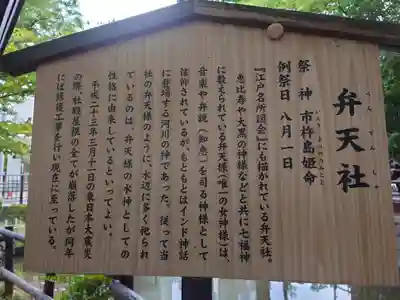 弁天社
べんてんしゃ
祭神 市杵島姫命
いちきしまひめのみこと
例祭日 八月一日
『江戸名所図会』にも描かれている弁天社。
恵比寿や大黒の神様などと共に七福神
に数えられている弁天様(唯一の女神様)は、
音楽や弁説(知恵)を司る神様として
信仰されているが、もともとはインド神話
に登場する河川の神であった。従って当
社の弁天様のように、水辺に多く祀られ
ているのは、弁天様の水神としての
性格に由来しているといってよい。
平成二十三年三月十一日の東日本大震災
の際、社殿屋根の全てが崩落したが同年
には修復工事を行い現在に至っている。